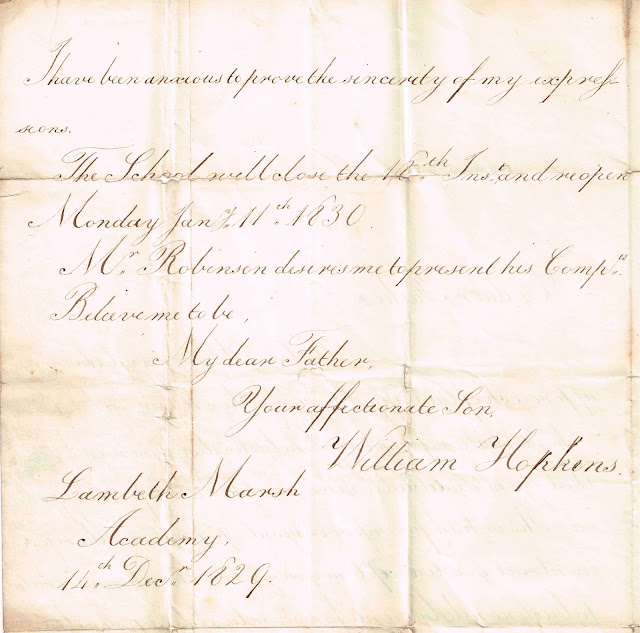 I have been anxious to prove the sincerity of my expres-
sions.
The School will close the 18th Inst. and reopen
Monday Jany. 11th 1830.
Mr. Robinson desires me to present his Compts.
Believe me to be,
My dear Father,
Your affectionate Son,
William Hopkins.
Lambeth Marsh
Academy,
14th Decr. 1829.